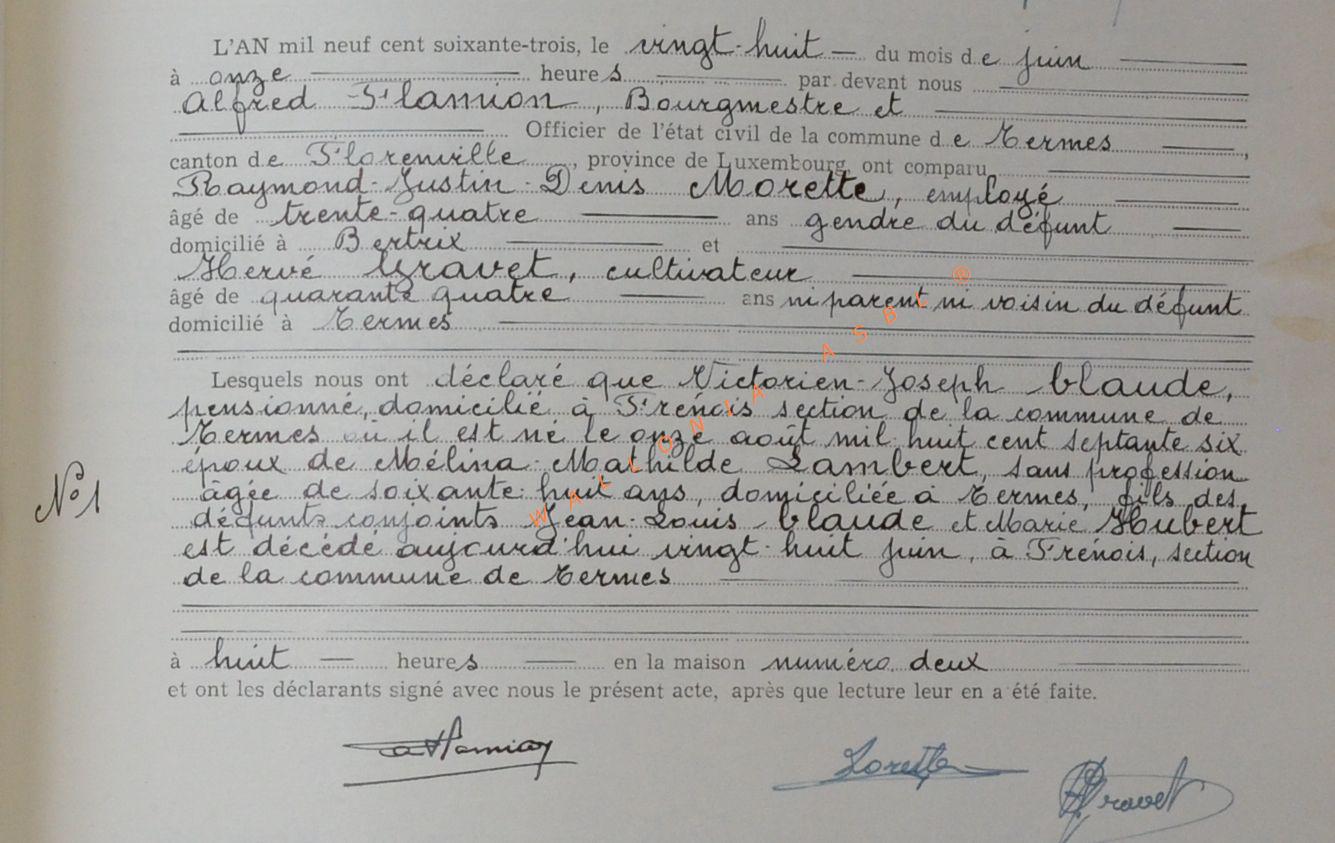 L'AN mil neuf cent soixante-trois, le vingt-huit du mois de juin
à onze heures par devant nous
Alfred Flamion, Bourgmestre et
Officier de l'état civil de la commune de Termes,
canton de Florenville, province de Luxembourg, ont comparu
Raymond-Justin-Denis Morette, employé
âgé de trente-quatre ans gendre du défunt
domicilié à Bertrix et
Hervé Gravet, cultivateur
âgé de quarante quatre ans ni parent ni voisin du défunt
domicilié à Termes
Lesquels nous ont déclaré que Victorien-Joseph Claude,
pensionné, domicilié à Frenois section de la commune de
Termes où il est né le onze août mil huit cent septante six
époux de Mélina-Mathilde Lambert, sans profession
âgée de soixante-huit ans, domiciliée à Termes, fils des
N° 1
défunts conjoints Jean-Louis Claude et Marie Hubert
est décédé aujourd'hui vingt-huit juin, à Frenois, section
de la commune de Termes
à huit heures en la maison numéro deux
et ont les déclarants signé avec nous le présent acte, après que lecture leur en a été faite.
WALLONIA ASBL ®
Gravet